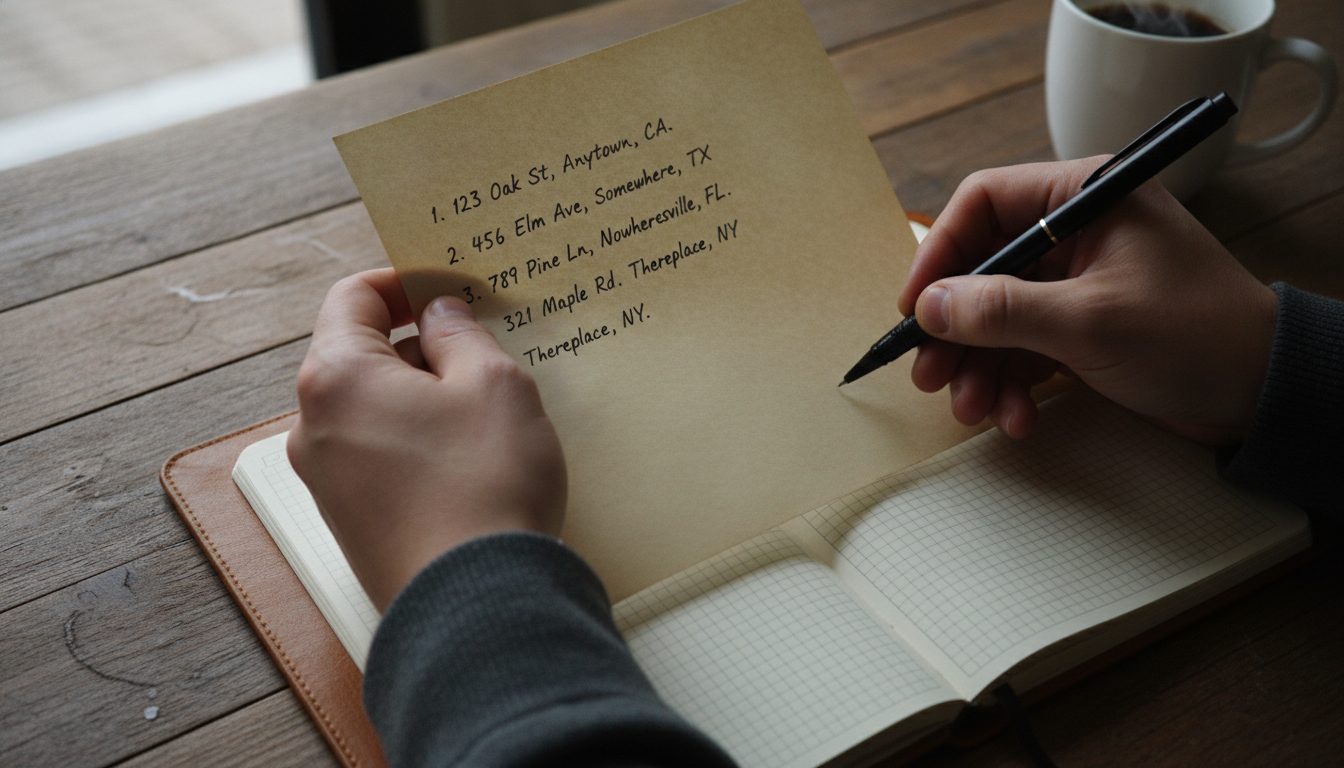 1. 123 Oak St, Anytown, CA.
2. 456 Elm Ave, Somewhere, TX
3. 789 Pine Ln, Nowheresville, FL.
321 Maple Rd. Thereplace, NY
Thereplace, NY.